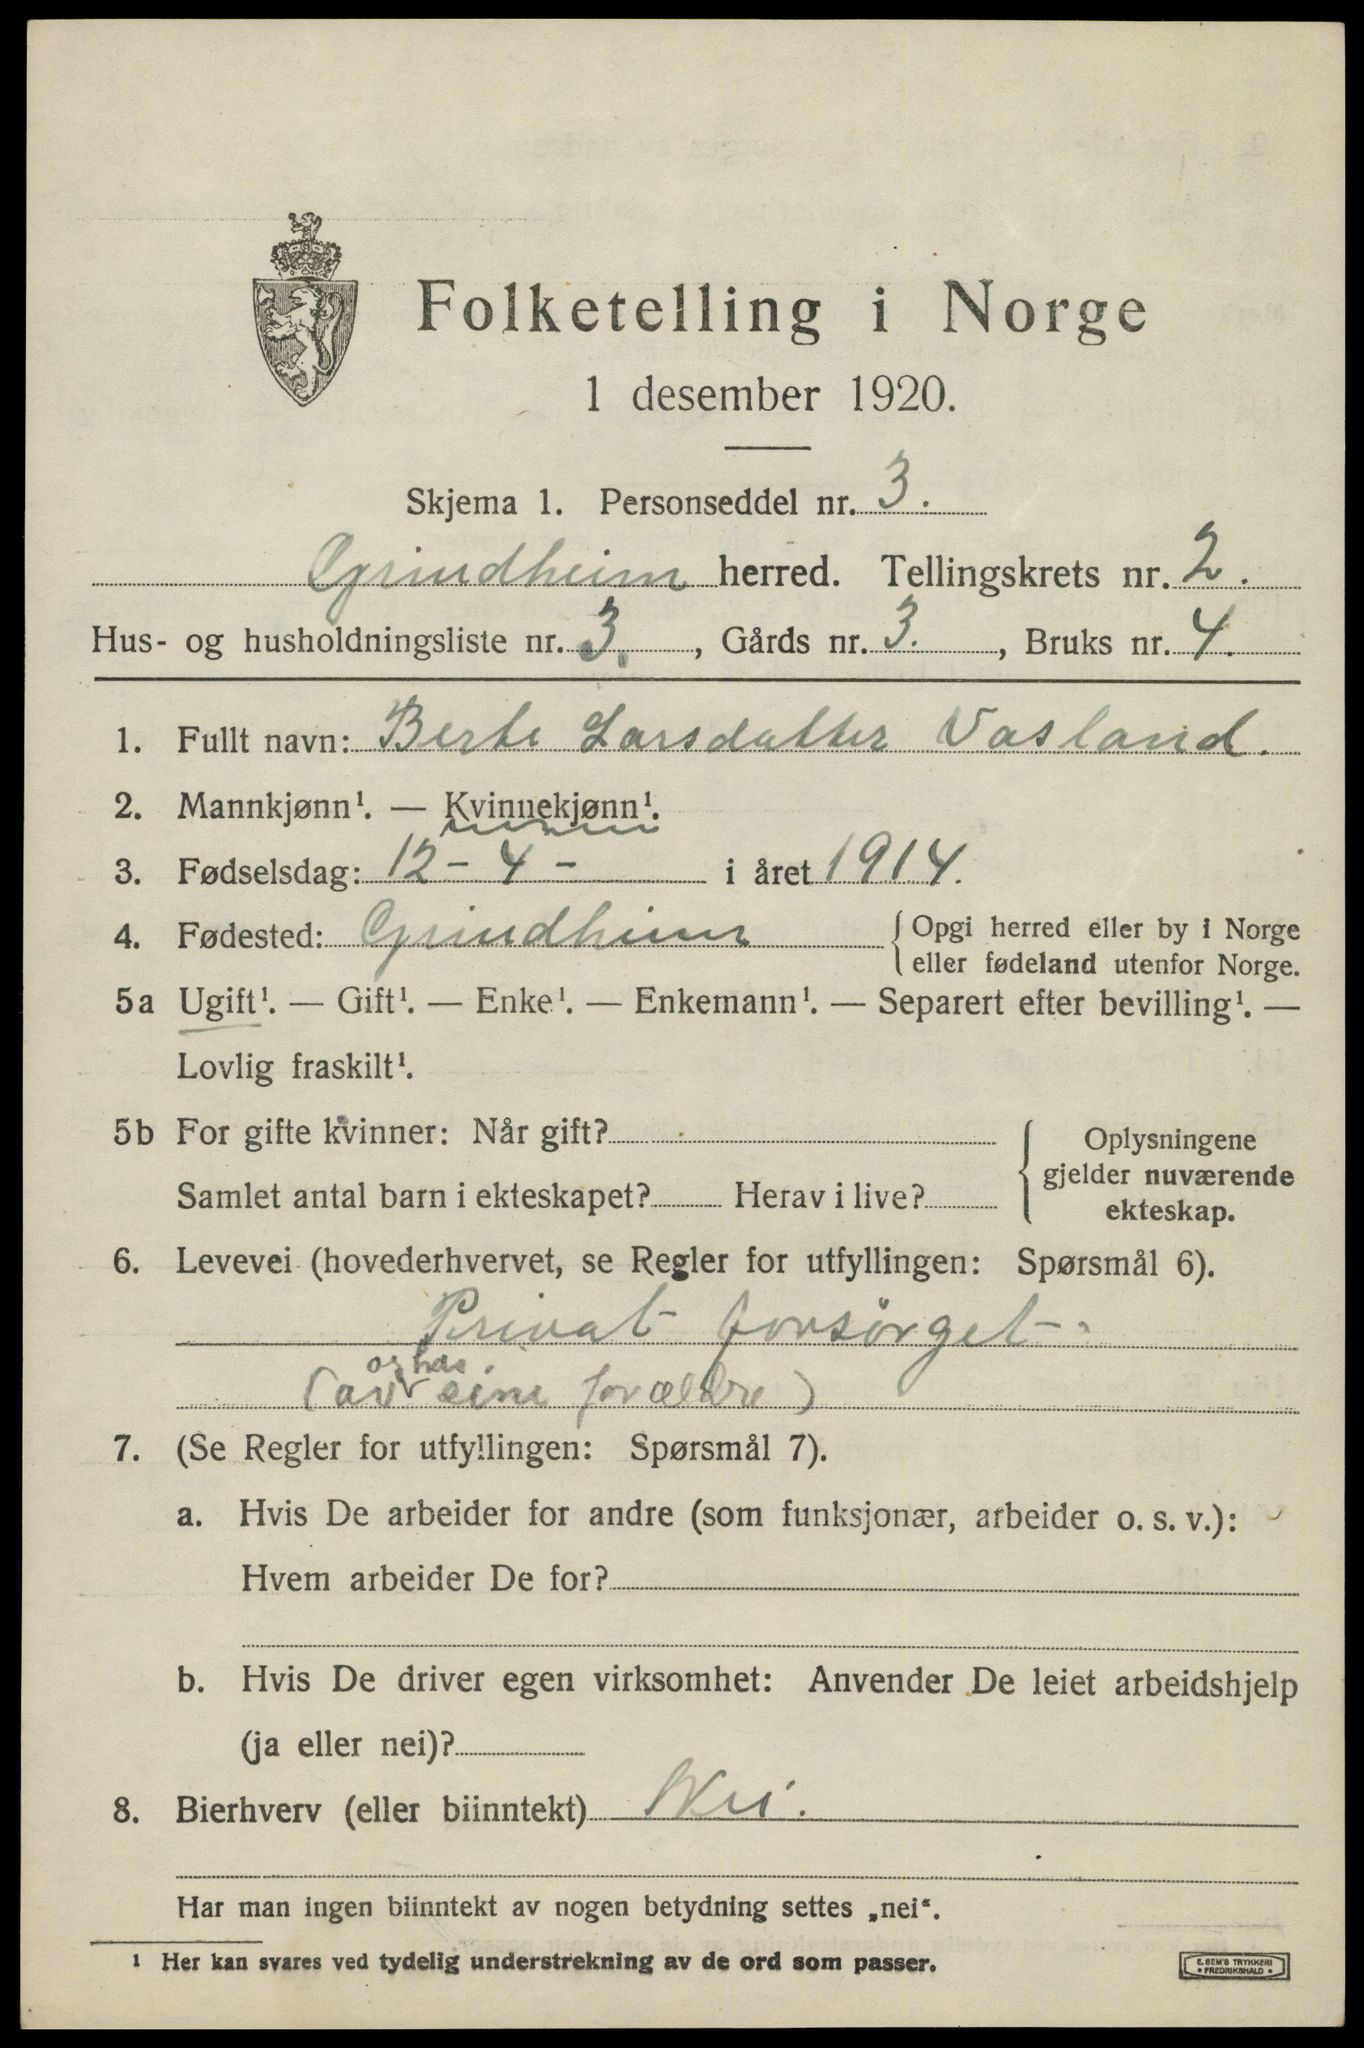 Folketelling i Norge
1 desember 1920.
Skjema 1. Personseddel nr. 3.
Grindheim herred. Tellingskrets nr. 2.
Hus- og husholdningsliste nr. 3., Gårds nr. 3., Bruks nr. 4.
1. Fullt navn: Berte Larsdatter Vasland.
2. Mannkjønn¹. — Kvinnekjønn¹.
3. Fødselsdag: 12 - 4 - i året 1914.
4. Fødested: Grindheim { Opgi herred eller by i Norge
eller fødeland utenfor Norge.
5a Ugift¹. — Gift¹. — Enke¹. — Enkemann¹. — Separert efter bevilling¹. —
Lovlig fraskilt¹.
5b For gifte kvinner: Når gift?
Samlet antal barn i ekteskapet? Herav i live?
{ Oplysningene
gjelder nuværende
ekteskap.
6. Levevei (hovederhvervet, se Regler for utfyllingen: Spørsmål 6).
Privat forsørget.
og hos
(av sine forældre)
7. (Se Regler for utfyllingen: Spørsmål 7).
a. Hvis De arbeider for andre (som funksjonær, arbeider o. s. v.):
Hvem arbeider De for?
b. Hvis De driver egen virksomhet: Anvender De leiet arbeidshjelp
(ja eller nei)?
8. Bierhverv (eller biinntekt) Nei.
Har man ingen biinntekt av nogen betydning settes „nei“.
¹ Her kan svares ved tydelig understrekning av de ord som passer.
E. SEM'S TRYKKERI
• FREDRIKSHALD •